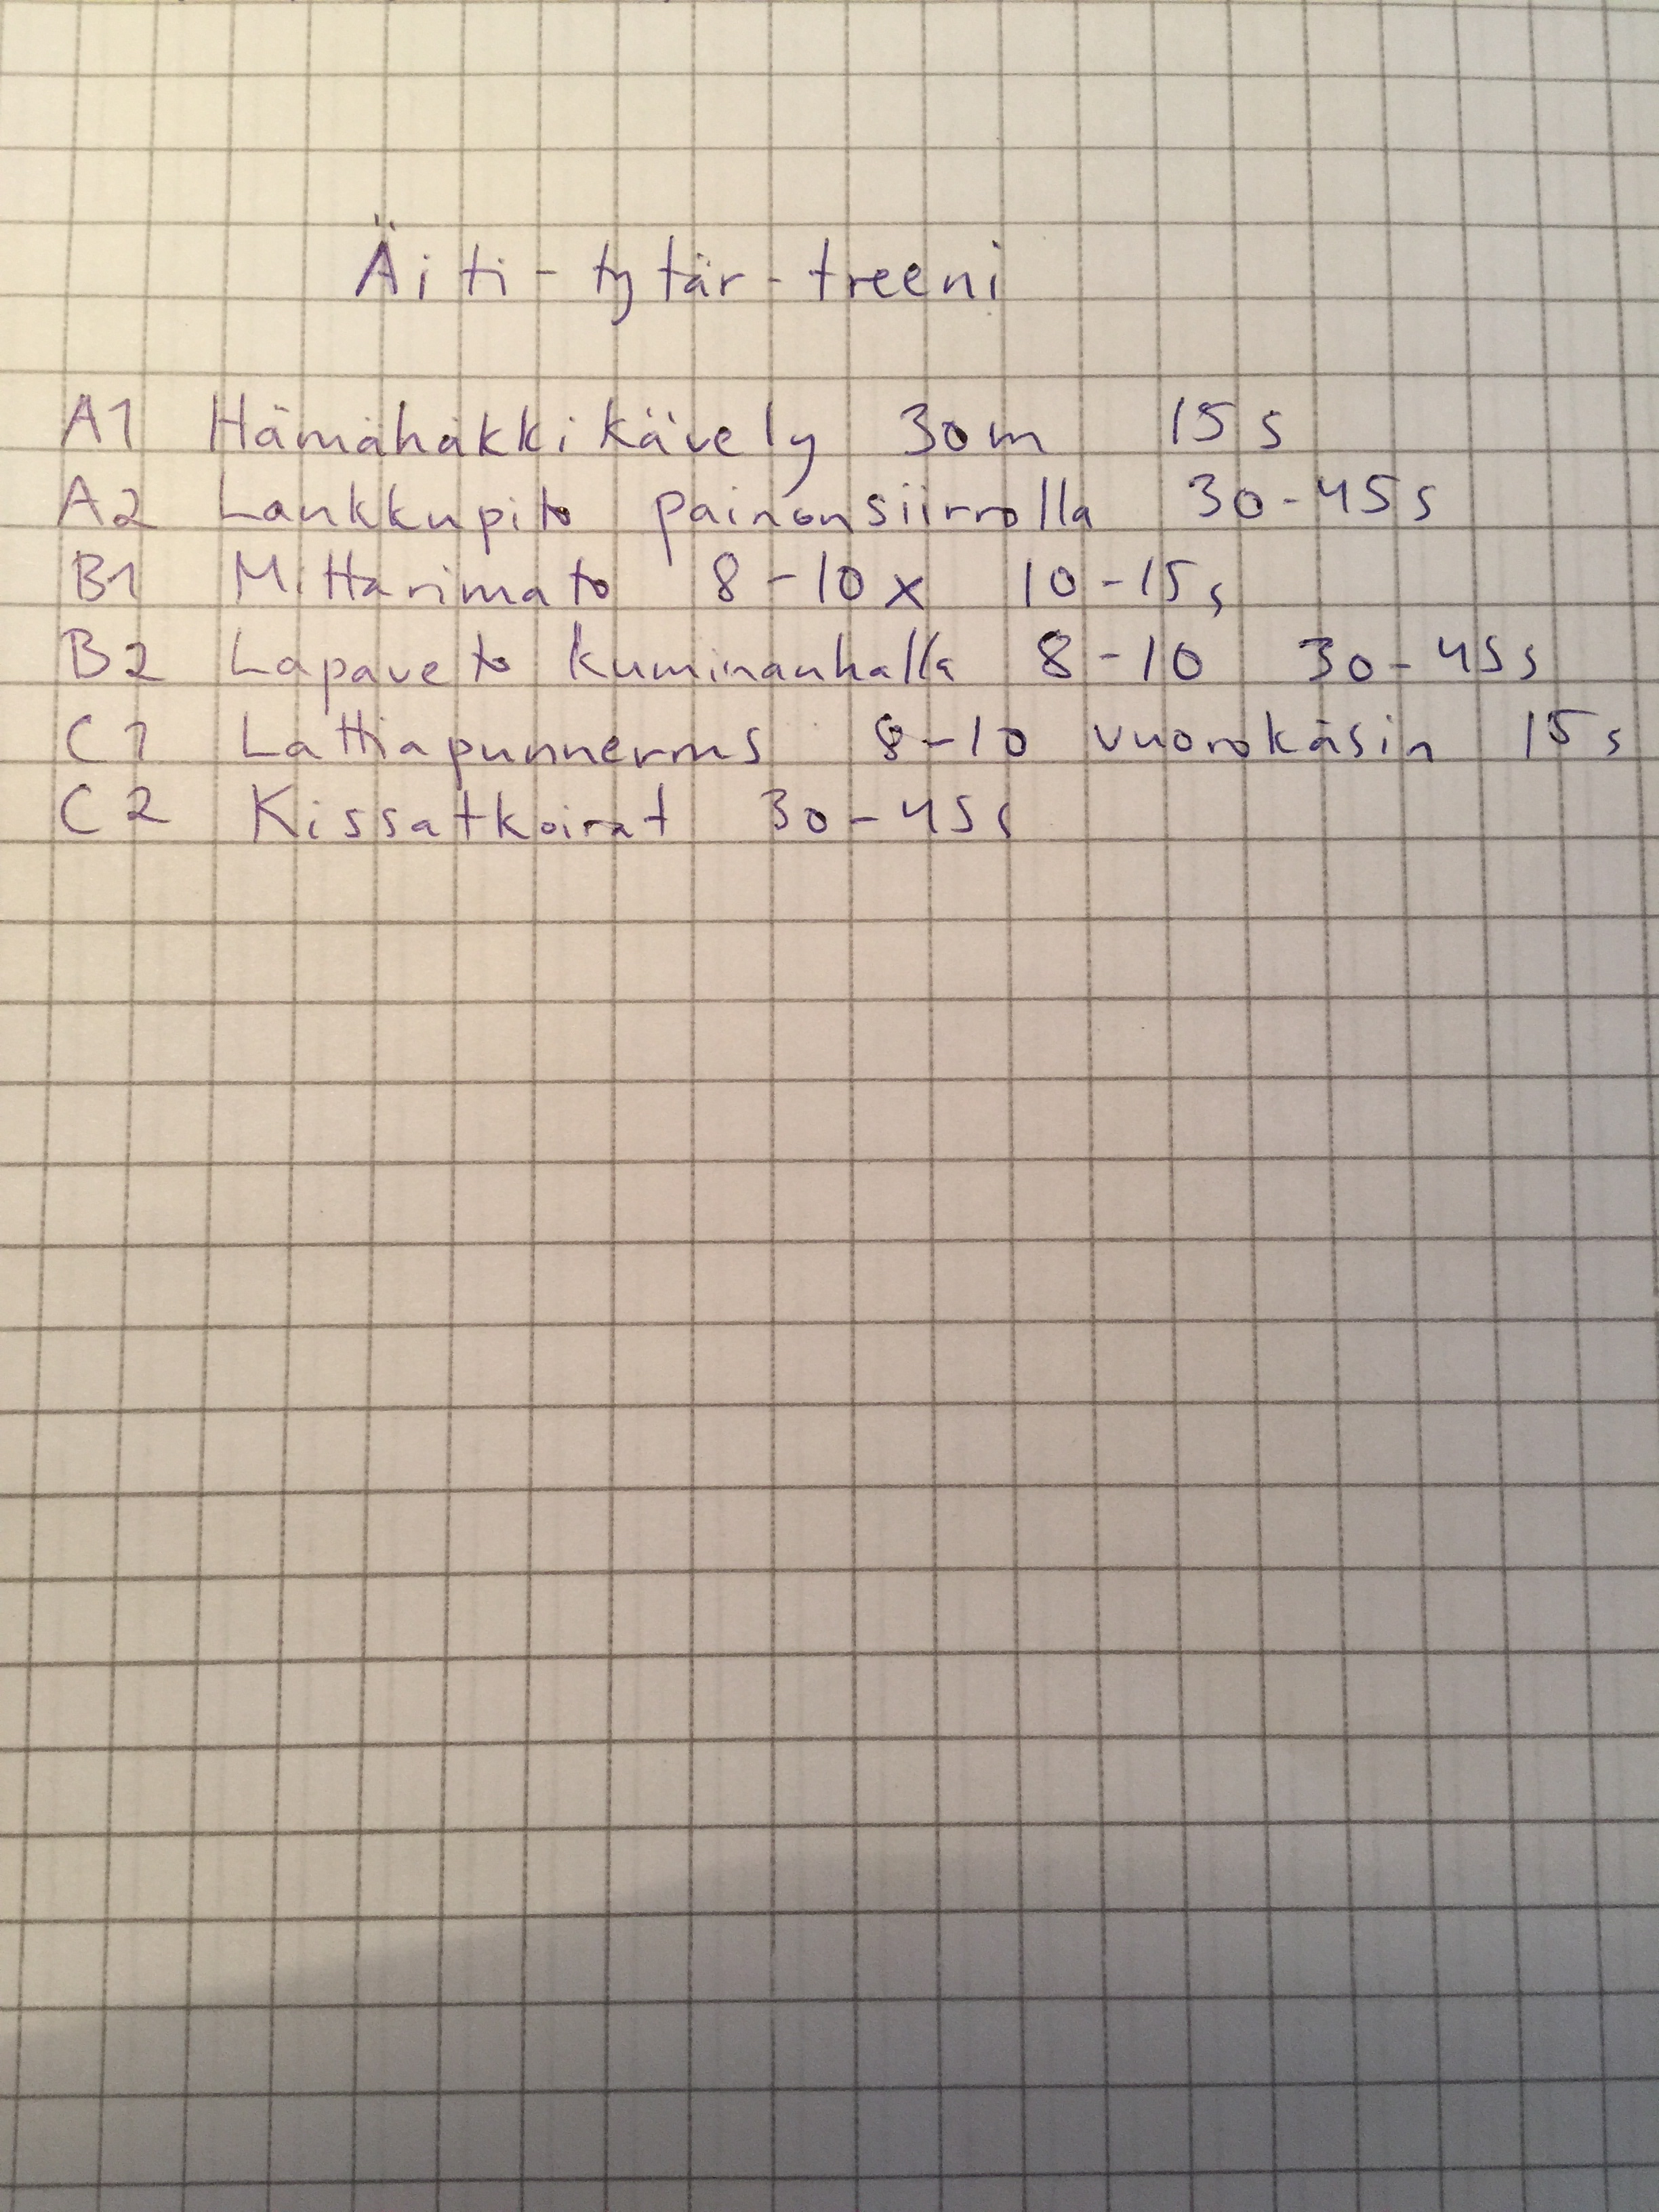 Äiti-tytär-treeni
A1 Hämähäkkikävely 30m 15s
A2 Lankkupito painonsiirrolla 30-45s
B1 Mittarimato 8-10x 10-15s
B2 Lapaveto kuminauhalla 8-10 30-45s
C1 Lattiapunnerrus 8-10 vuorokäsin 15s
C2 Kissatkoirat 30-45s